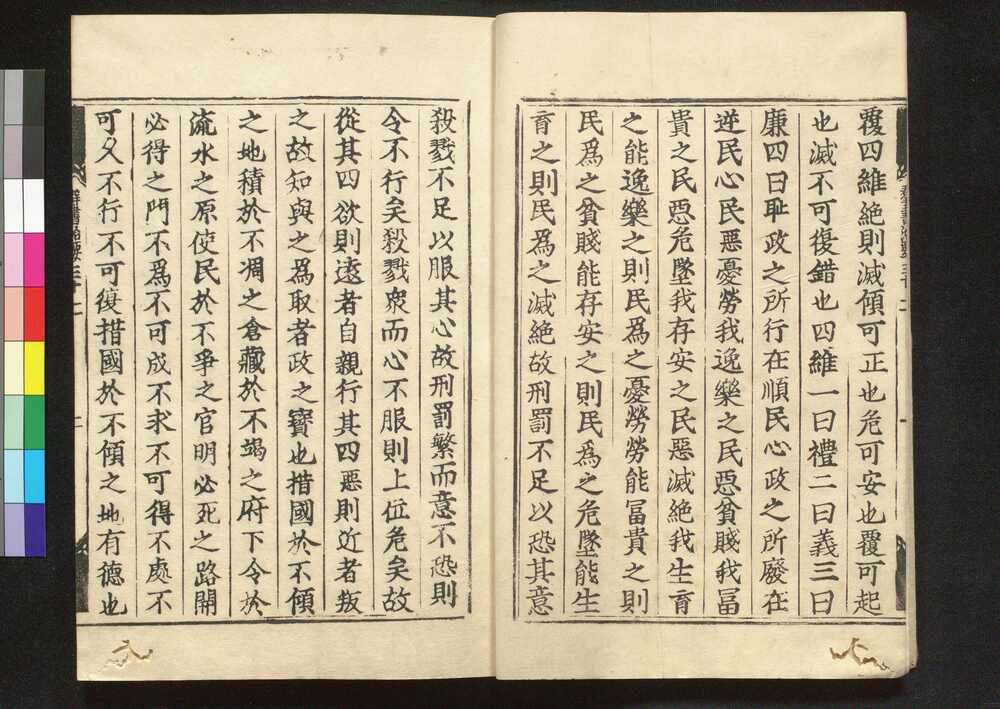 覆四維絶則滅傾可正也危可安也覆可起
也滅不可復錯也四維一曰禮二曰義三曰
廉四曰耻政之所行在順民心政之所廢在
逆民心民惡憂勞我逸樂之民惡貧賤我冨
貴之民惡危墜我存安之民惡滅絶我生育
之能逸樂之則民爲之憂勞勞能冨貴之則
民爲之貧賤能存安之則民爲之危墜能生
育之則民爲之滅絶故刑罰不足以恐其意
殺戮不足以服其心故刑罰繁而意不恐則
令不行矣殺戮衆而心不服則上位危矣故
從其四欲則遠者自親行其四惡則近者叛
之故知與之爲取者政之寶也措國於不傾
之地積於不凅之倉藏於不竭之府下令於
流水之原使民於不爭之官明必死之路開
必得之門不爲不可成不求不可得不處不
可久不行不可復措國於不傾之地有德也
群書治要三十二
二